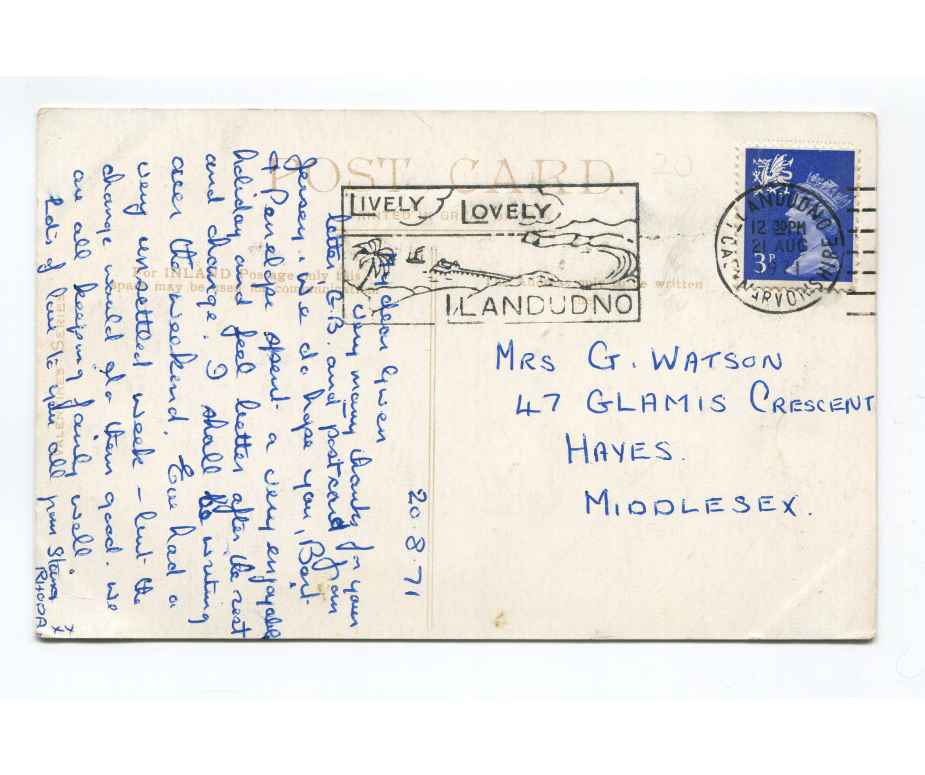 POST CARD
PRINTED IN GR
For INLAND Postage only this
Space may be used for communication
be written
VALENTINES SERIES
20
LIVELY LOVELY
LLANDUDNO
LLANDUDNO
12 30PM
21 AUG
CAERNARVONSHIRE
3P
20.8.71
My dear Gwen
Very many thanks for your
letter, G.B. and postcard from
Jersey. We do hope you, Bert
& Penelope spent a very enjoyable
holiday and feel better after the rest
and change. I shall be writing
over the weekend. Eve had a
very unsettled week – but the
change would do them good. We
are all keeping fairly well.
Lots of luv to you all from
RHODA xx
MRS G. WATSON
47 GLAMIS CRESCENT
HAYES.
MIDDLESEX.